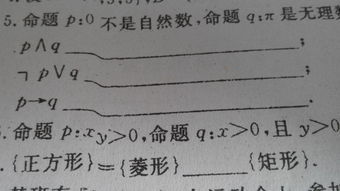 5. 命题 p:0 不是自然数,命题 q:π 是无理
p∧q ;
¬ p∨q ;
p→q .
命题 p:xy>0,命题 q:x>0,且 y>0
{正方形}={菱形} {矩形}.